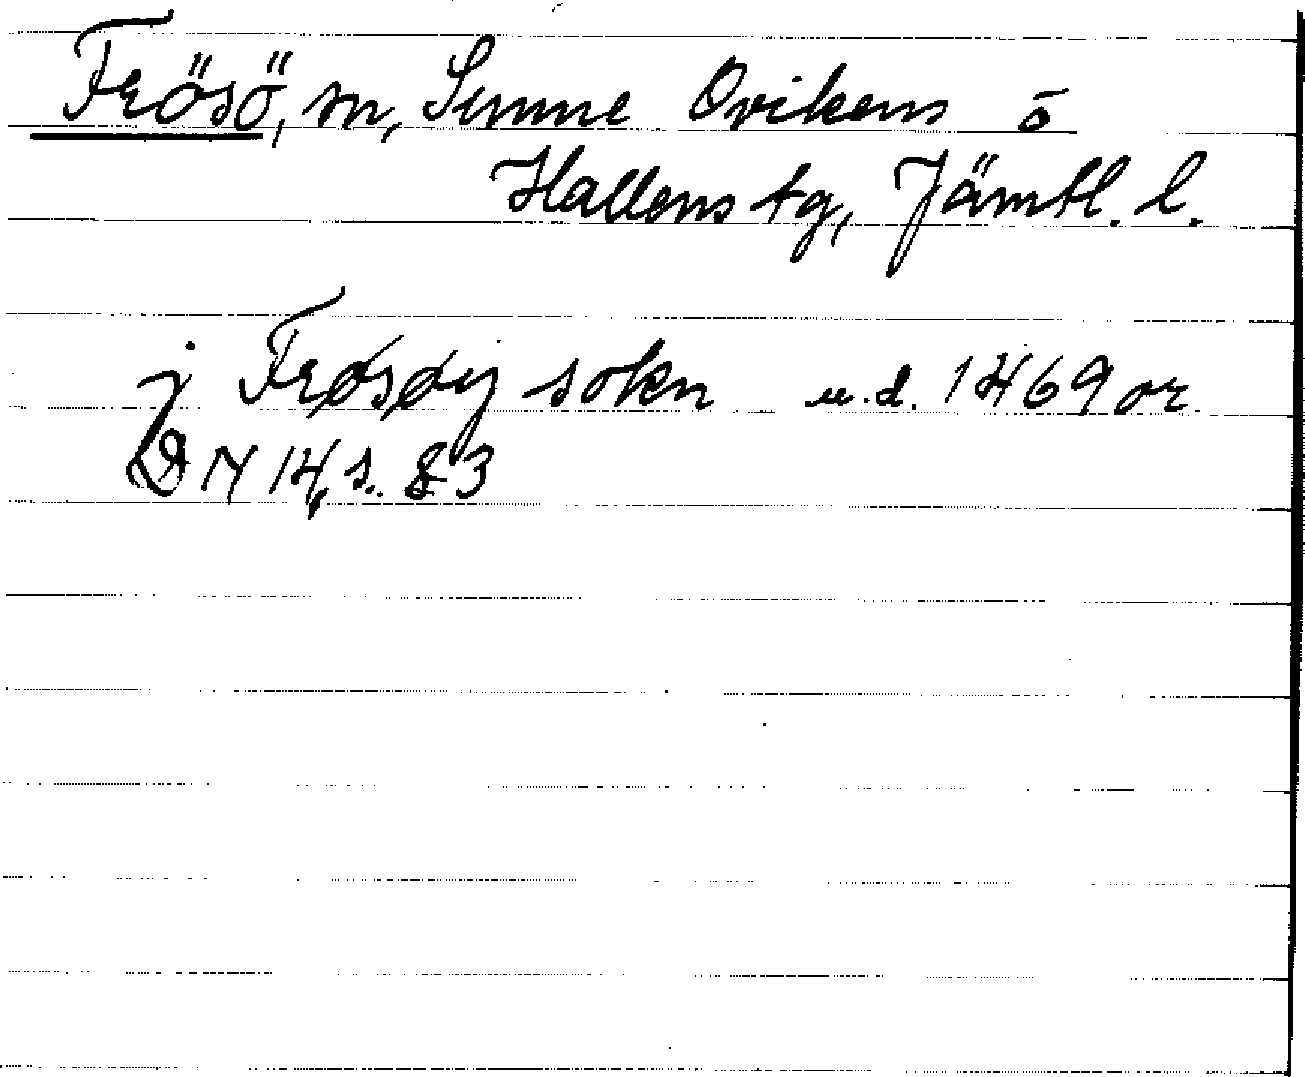 Frösö, sn, Sunne Ovikens o
Hallens tg, Jämtl. l.
j Frøsøy sokn u.d. 1469 or
DN 14, s. 83